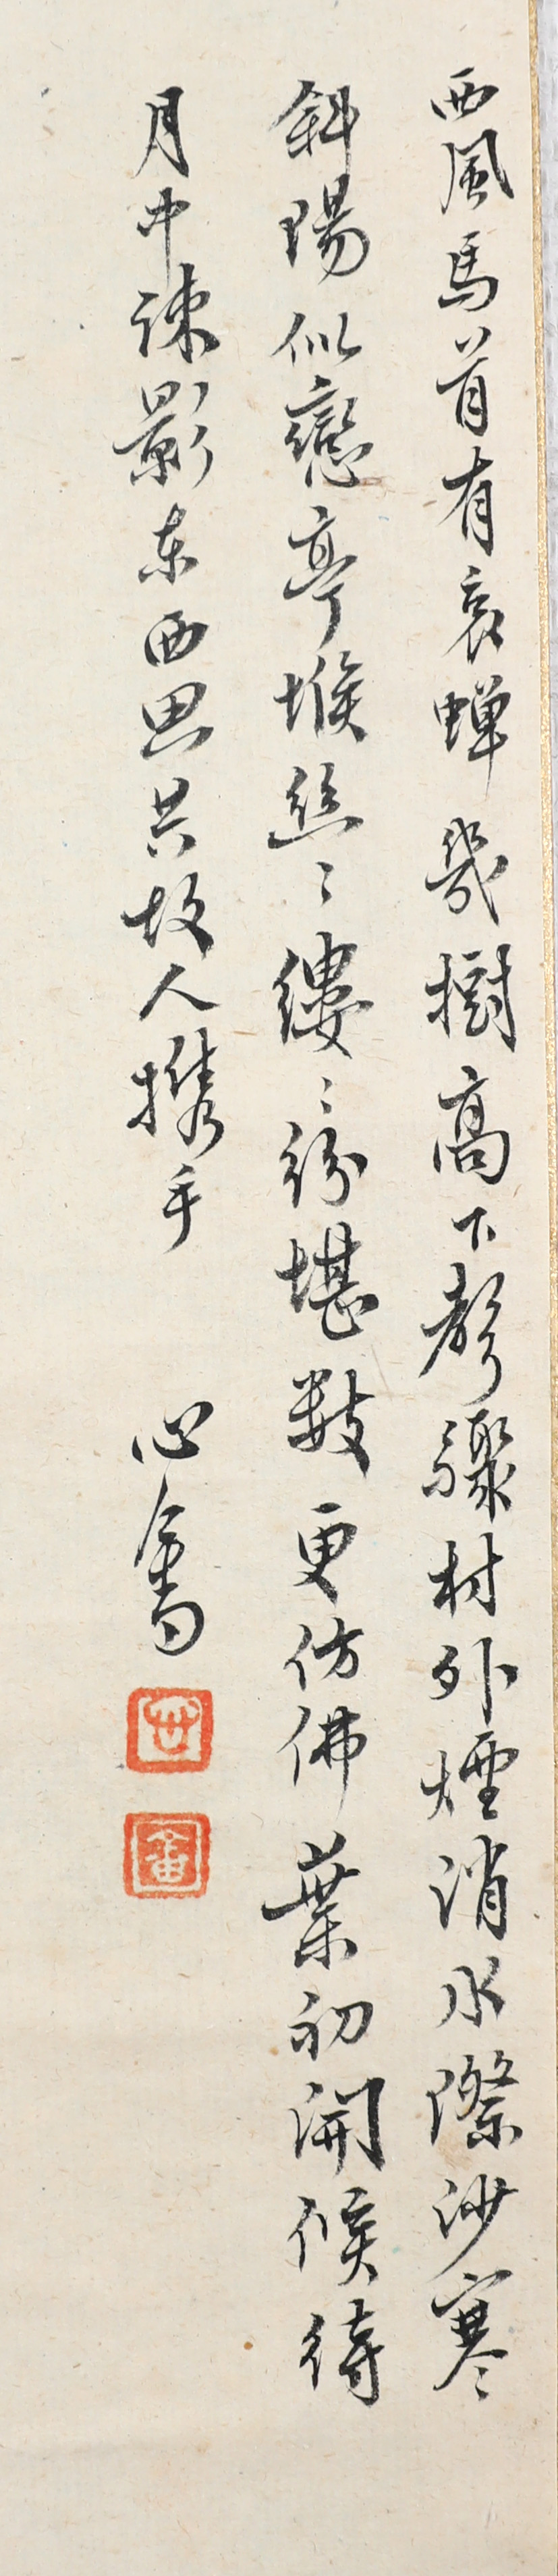 西風馬首有哀蟬幾樹高下聲驟村外煙消水際沙寒
斜陽似戀亭堠絲〻縷〻紛堪數更仿佛葉初開候待
月中疎影东西思共故人攜手
心畬